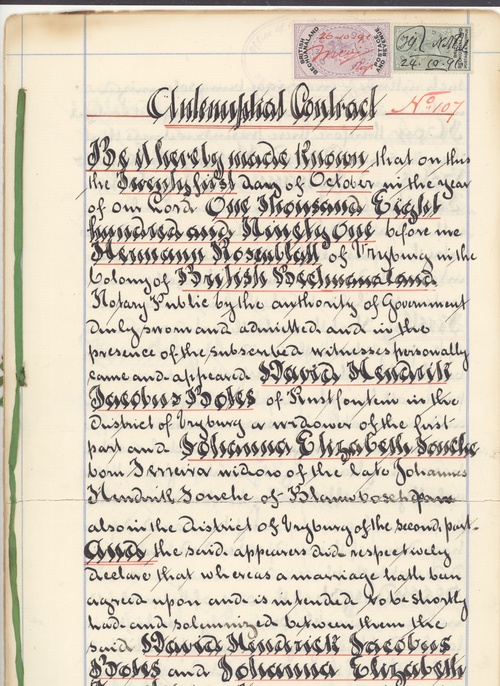 BRITISH BECHUANALAND
POSTAGE AND REVENUE
Antenuptial Contract No. 107
Be it hereby made Known that on this
the Twenty first day of October in the year
of our Lord One Thousand Eight
hundred and Ninety One before me
Hermann Rosenblatt of Vryburg in the
Colony of British Bechuanaland
Notary Public by the authority of Government
duly sworn and admitted and in the
presence of the subscribed witnesses personally
came and appeared David Hendrik
Jacobus Botes of Rustfontein in the
District of Vryburg a widower of the first
part and Johanna Elizabeth Fouche
born Ferreira widow of the late Johannes
Hendrik Fouche of Blauwbosch
also in the District of Vryburg of the second part.
And the said appearers did respectively
declare that whereas a marriage hath been
agreed upon and is intended to be shortly
had and solemnized between them the
said David Hendrick Jacobus
Botes and Johanna Elizabeth